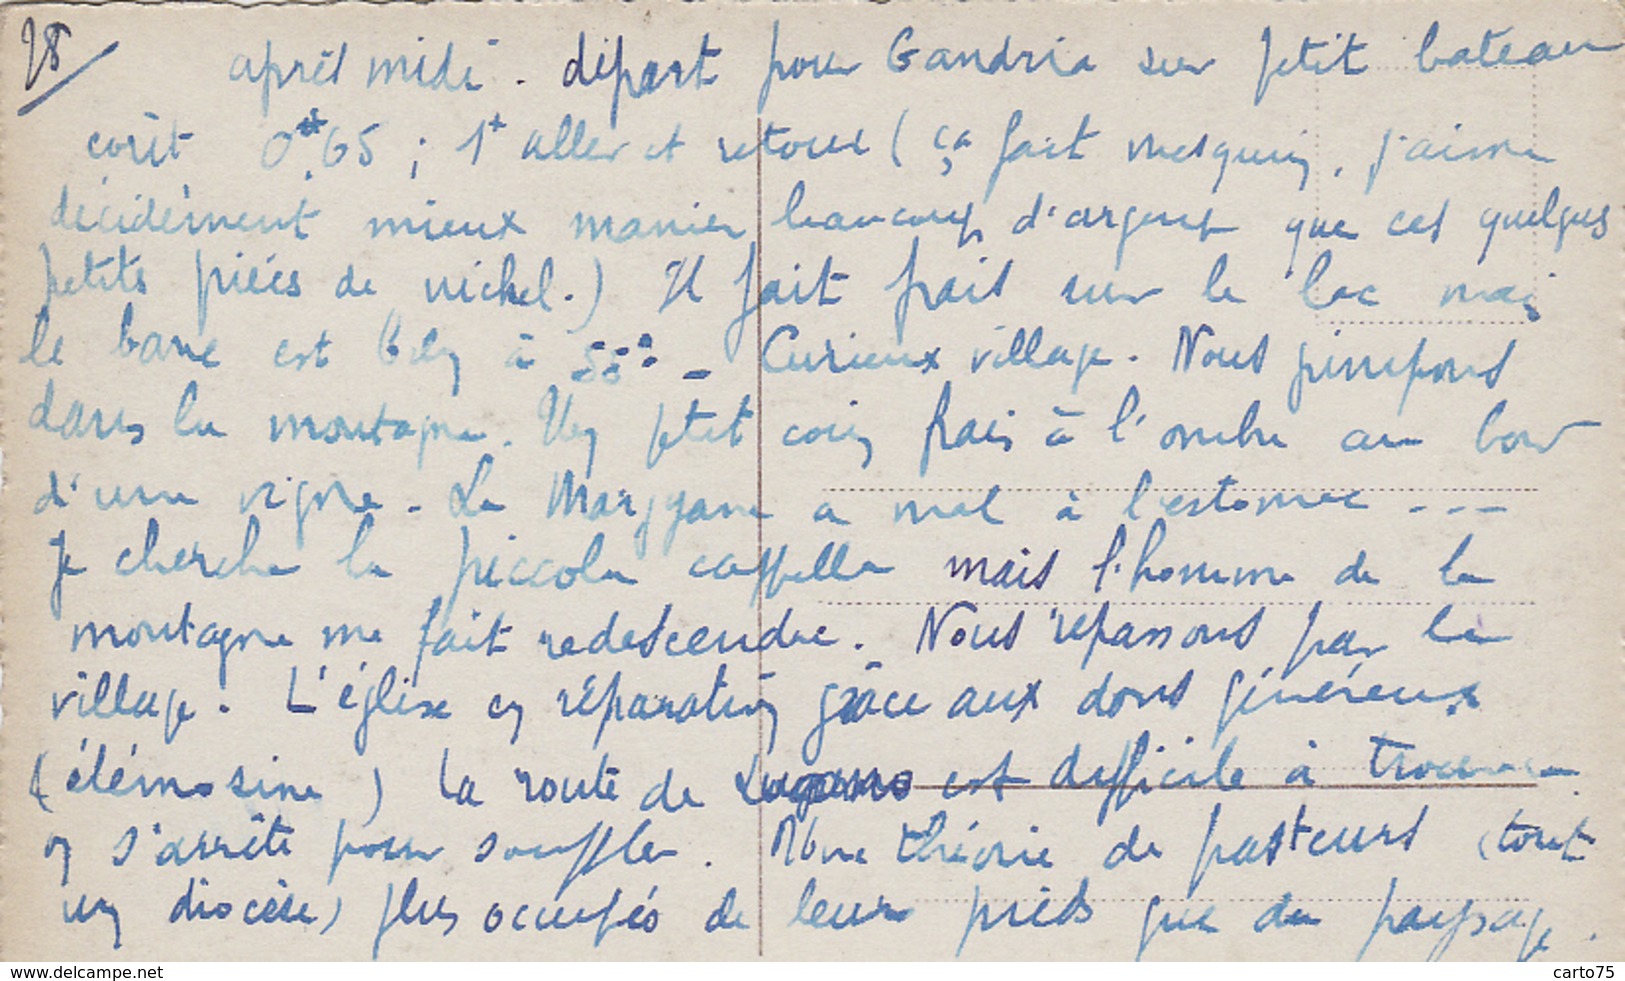 28/
après midi. départ pour Gandria sur petit bateau
coût 0 65 ; 1 aller et retour (ça fait mesquin, j'aime
décidément mieux manier beaucoup d'argent que ces quelques
petits pièces de nickel.) Il fait frais sur le lac mais
le banc est à 55° - Curieux village. Nous grimpons
dans la montagne. Un petit coin frais à l'ombre au bord
d'une vigne. La a mal à l'estomac ---
Je cherche la piccola cappella mais l'homme de la
montagne me fait redescendre. Nous repassons par le
village. L'église en réparation grâce aux dons généreux
(élémosine) la route de Lugano est difficile à trouver
on s'arrête pour souffler. Une théorie de pasteurs (tout
un diocèse) plus occupés de leurs pieds que du paysage.
www.delcampe.net
carto75